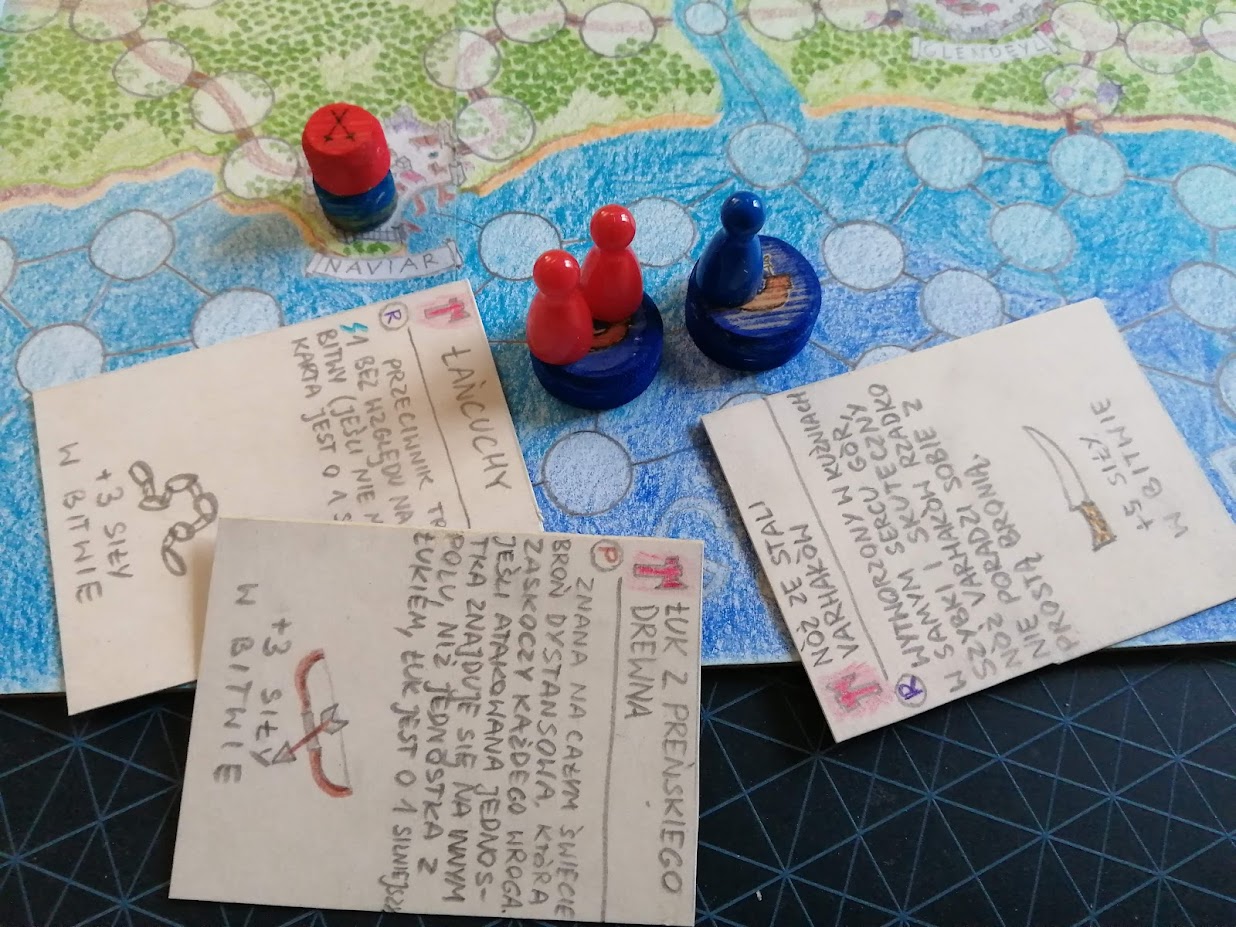 GLENDEYL
NAVIAR
ŁAŃCUCHY
R
PRZECIWNIK
BEZ WZGLĘDU NA
BITWY (JEŚLI NIE
KARTA JEST O 1
+3 SIŁY
W BITWIE
ŁUK Z PREŃSKIEGO
DREWNA
P
ZNANA NA CAŁYM ŚWIECIE
BROŃ DYSTANSOWA, KTÓRA
ZASKOCZY KAŻDEGO WROGA.
JEŚLI ATAKOWANA JEDNOS-
TKA ZNAJDUJE SIĘ NA INNYM
POLU, NIŻ JEDNOSTKA Z
ŁUKIEM, ŁUK JEST O 1 SILNIEJSZY
+3 SIŁY
W BITWIE
NÓŻ ZE STALI
VARHAKÓW
R
WYTWORZONY W KUŹNIACH
W SAMYM SERCU GÓR,
SZYBKI I SKUTECZNY,
NÓŻ VARHAKÓW RZADKO
NIE PORADZI SOBIE Z
PROSTĄ BRONIĄ.
+5 SIŁY
W BITWIE